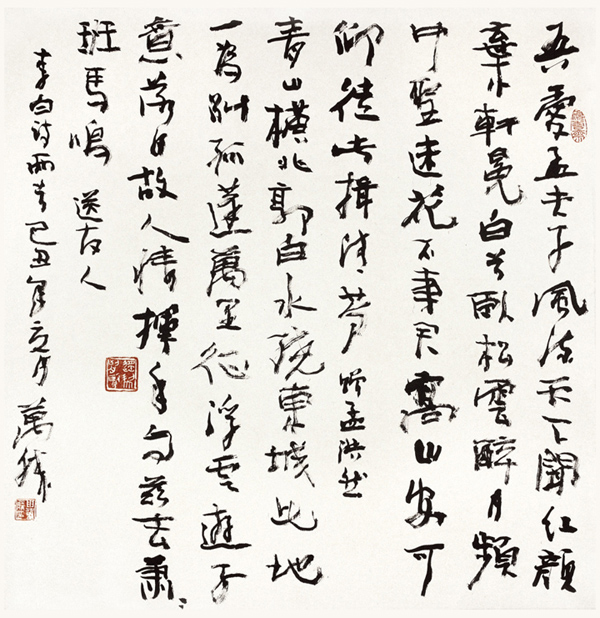 吾愛孟夫子風流天下聞紅顏
棄軒冕白首臥松雲醉月頻
中聖迷花不事君高山安可
仰徒此揖清芬 贈孟浩然
青山橫北郭白水繞東城此地
一為別孤蓬萬里征浮雲遊子
意落日故人情揮手自茲去蕭〻
班馬鳴 送友人
李白詩兩首己丑年 月 萬